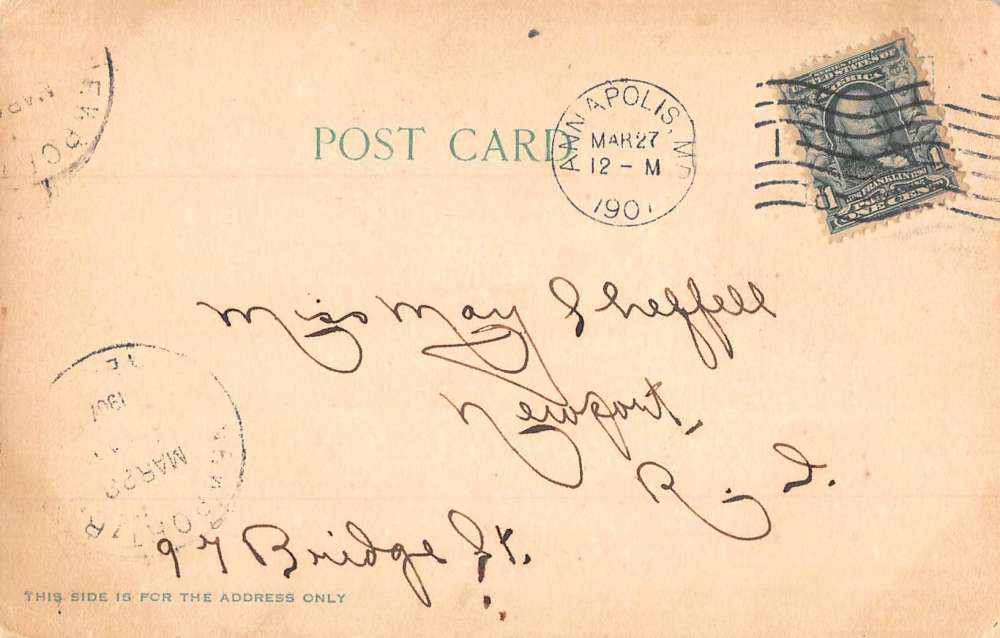 POST CARD
ANNAPOLIS, MD
MAR 27
12 - M
1907
UNITED STATES OF
AMERICA
1706 FRANKLIN 1790
1 ONE CENT 1
Miss May Sheffell
Newport,
R. I.
97 Bridge St.
NEWPORT
MAR
NEWPORT R
MAR 28
1907
THIS SIDE IS FOR THE ADDRESS ONLY